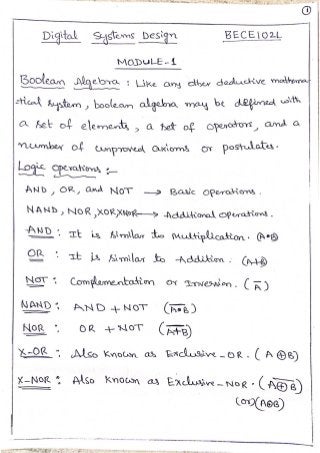 1
Digital Systems Design BECE102L
MODULE-1
Boolean Algebra : Like any other deductive mathema
-tical system, boolean algebra may be defined with
a set of elements, a set of operators, and a
number of unproved axioms or postulates.
Logic operations :-
AND, OR, and NOT → Basic operations.
NAND, NOR, XOR, XNOR → Additional operations.
AND : It is similar to multiplication. (A•B)
OR : It is similar to Addition. (A+B)
NOT : Complementation or Inversion. (A̅)
NAND : AND + NOT (A̅•̅B̅)
NOR : OR + NOT (A̅+̅B̅)
X-OR : Also known as Exclusive-OR. (A⊕B)
X-NOR : Also known as Exclusive-NOR. (A̅⊕̅B̅)
(or) (A⊙B)